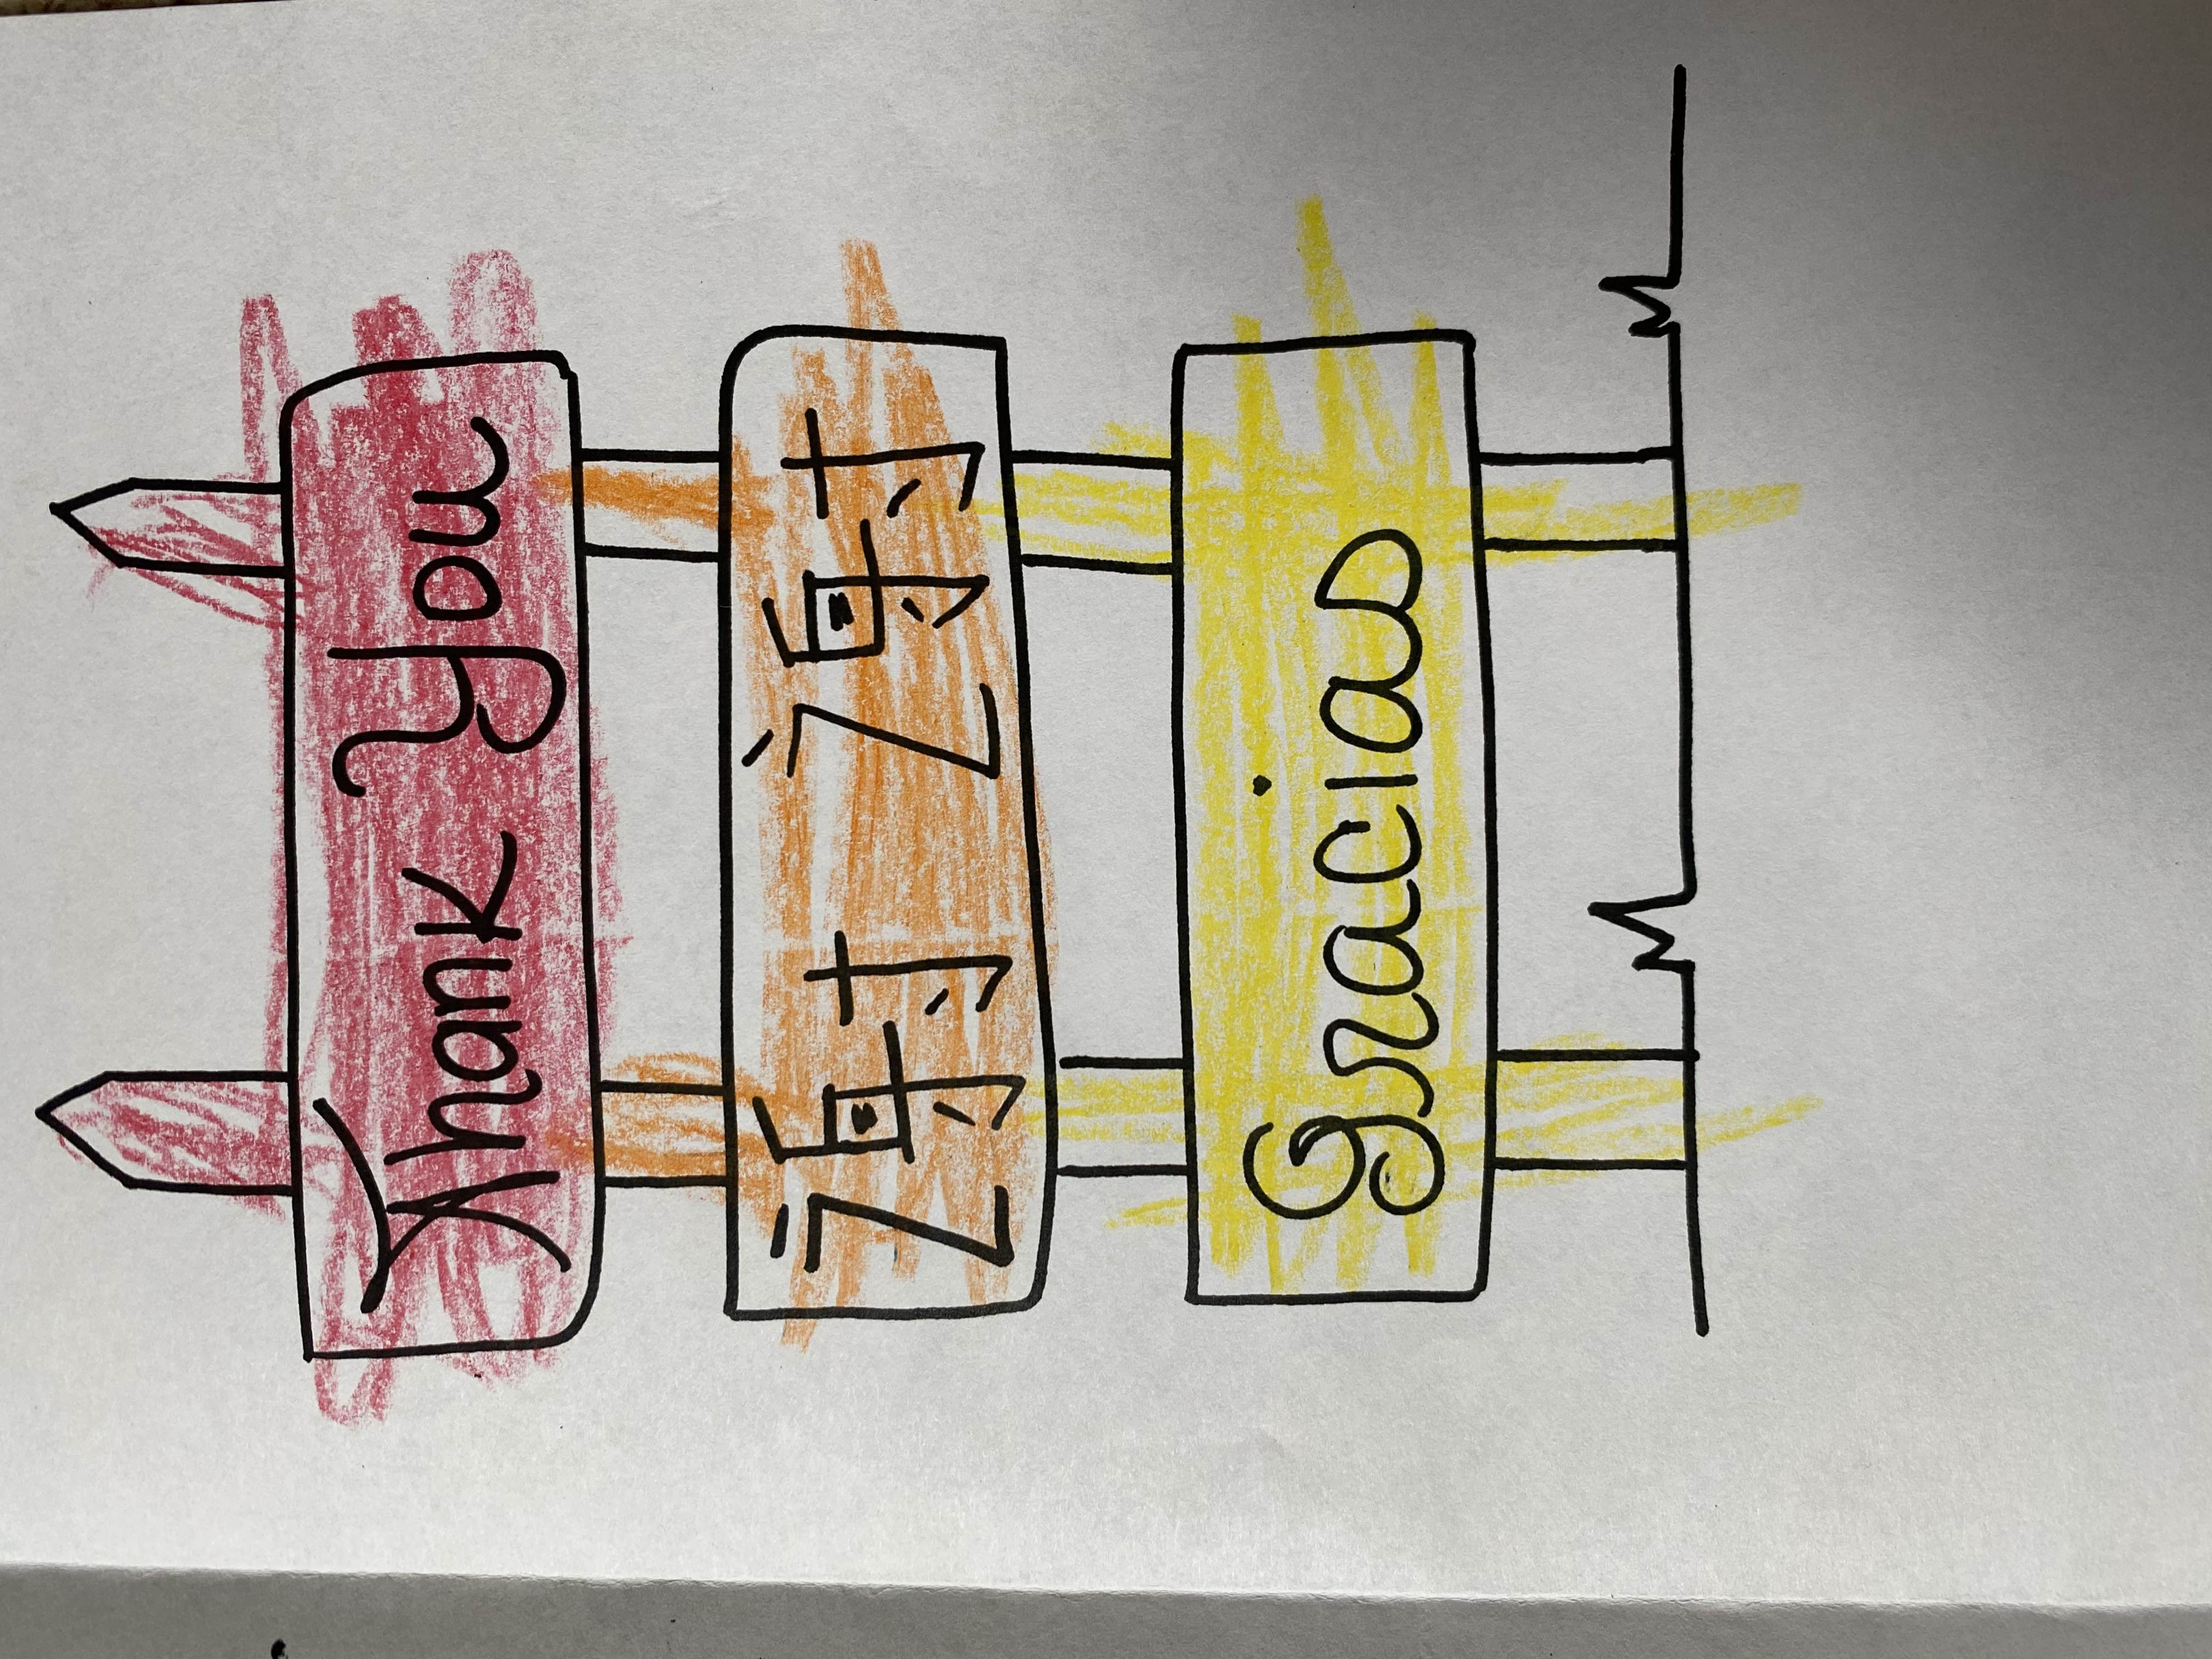 Thank You
谢 谢
Gracias